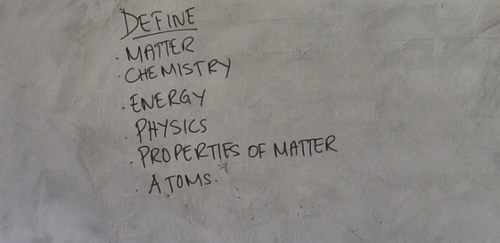 DEFINE
. MATTER
. CHEMISTRY
. ENERGY
. PHYSICS
. PROPERTIES OF MATTER
. ATOMS.